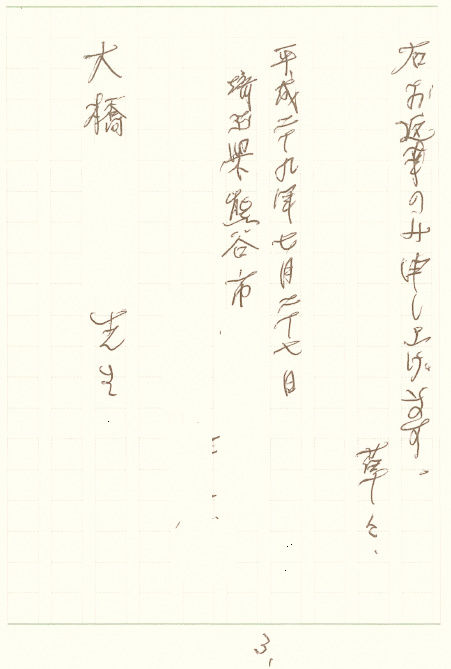 右お返事のみ申し上げます。
草々、
平成二十九年七月二十七日
埼玉県熊谷市
大橋 先生
3,